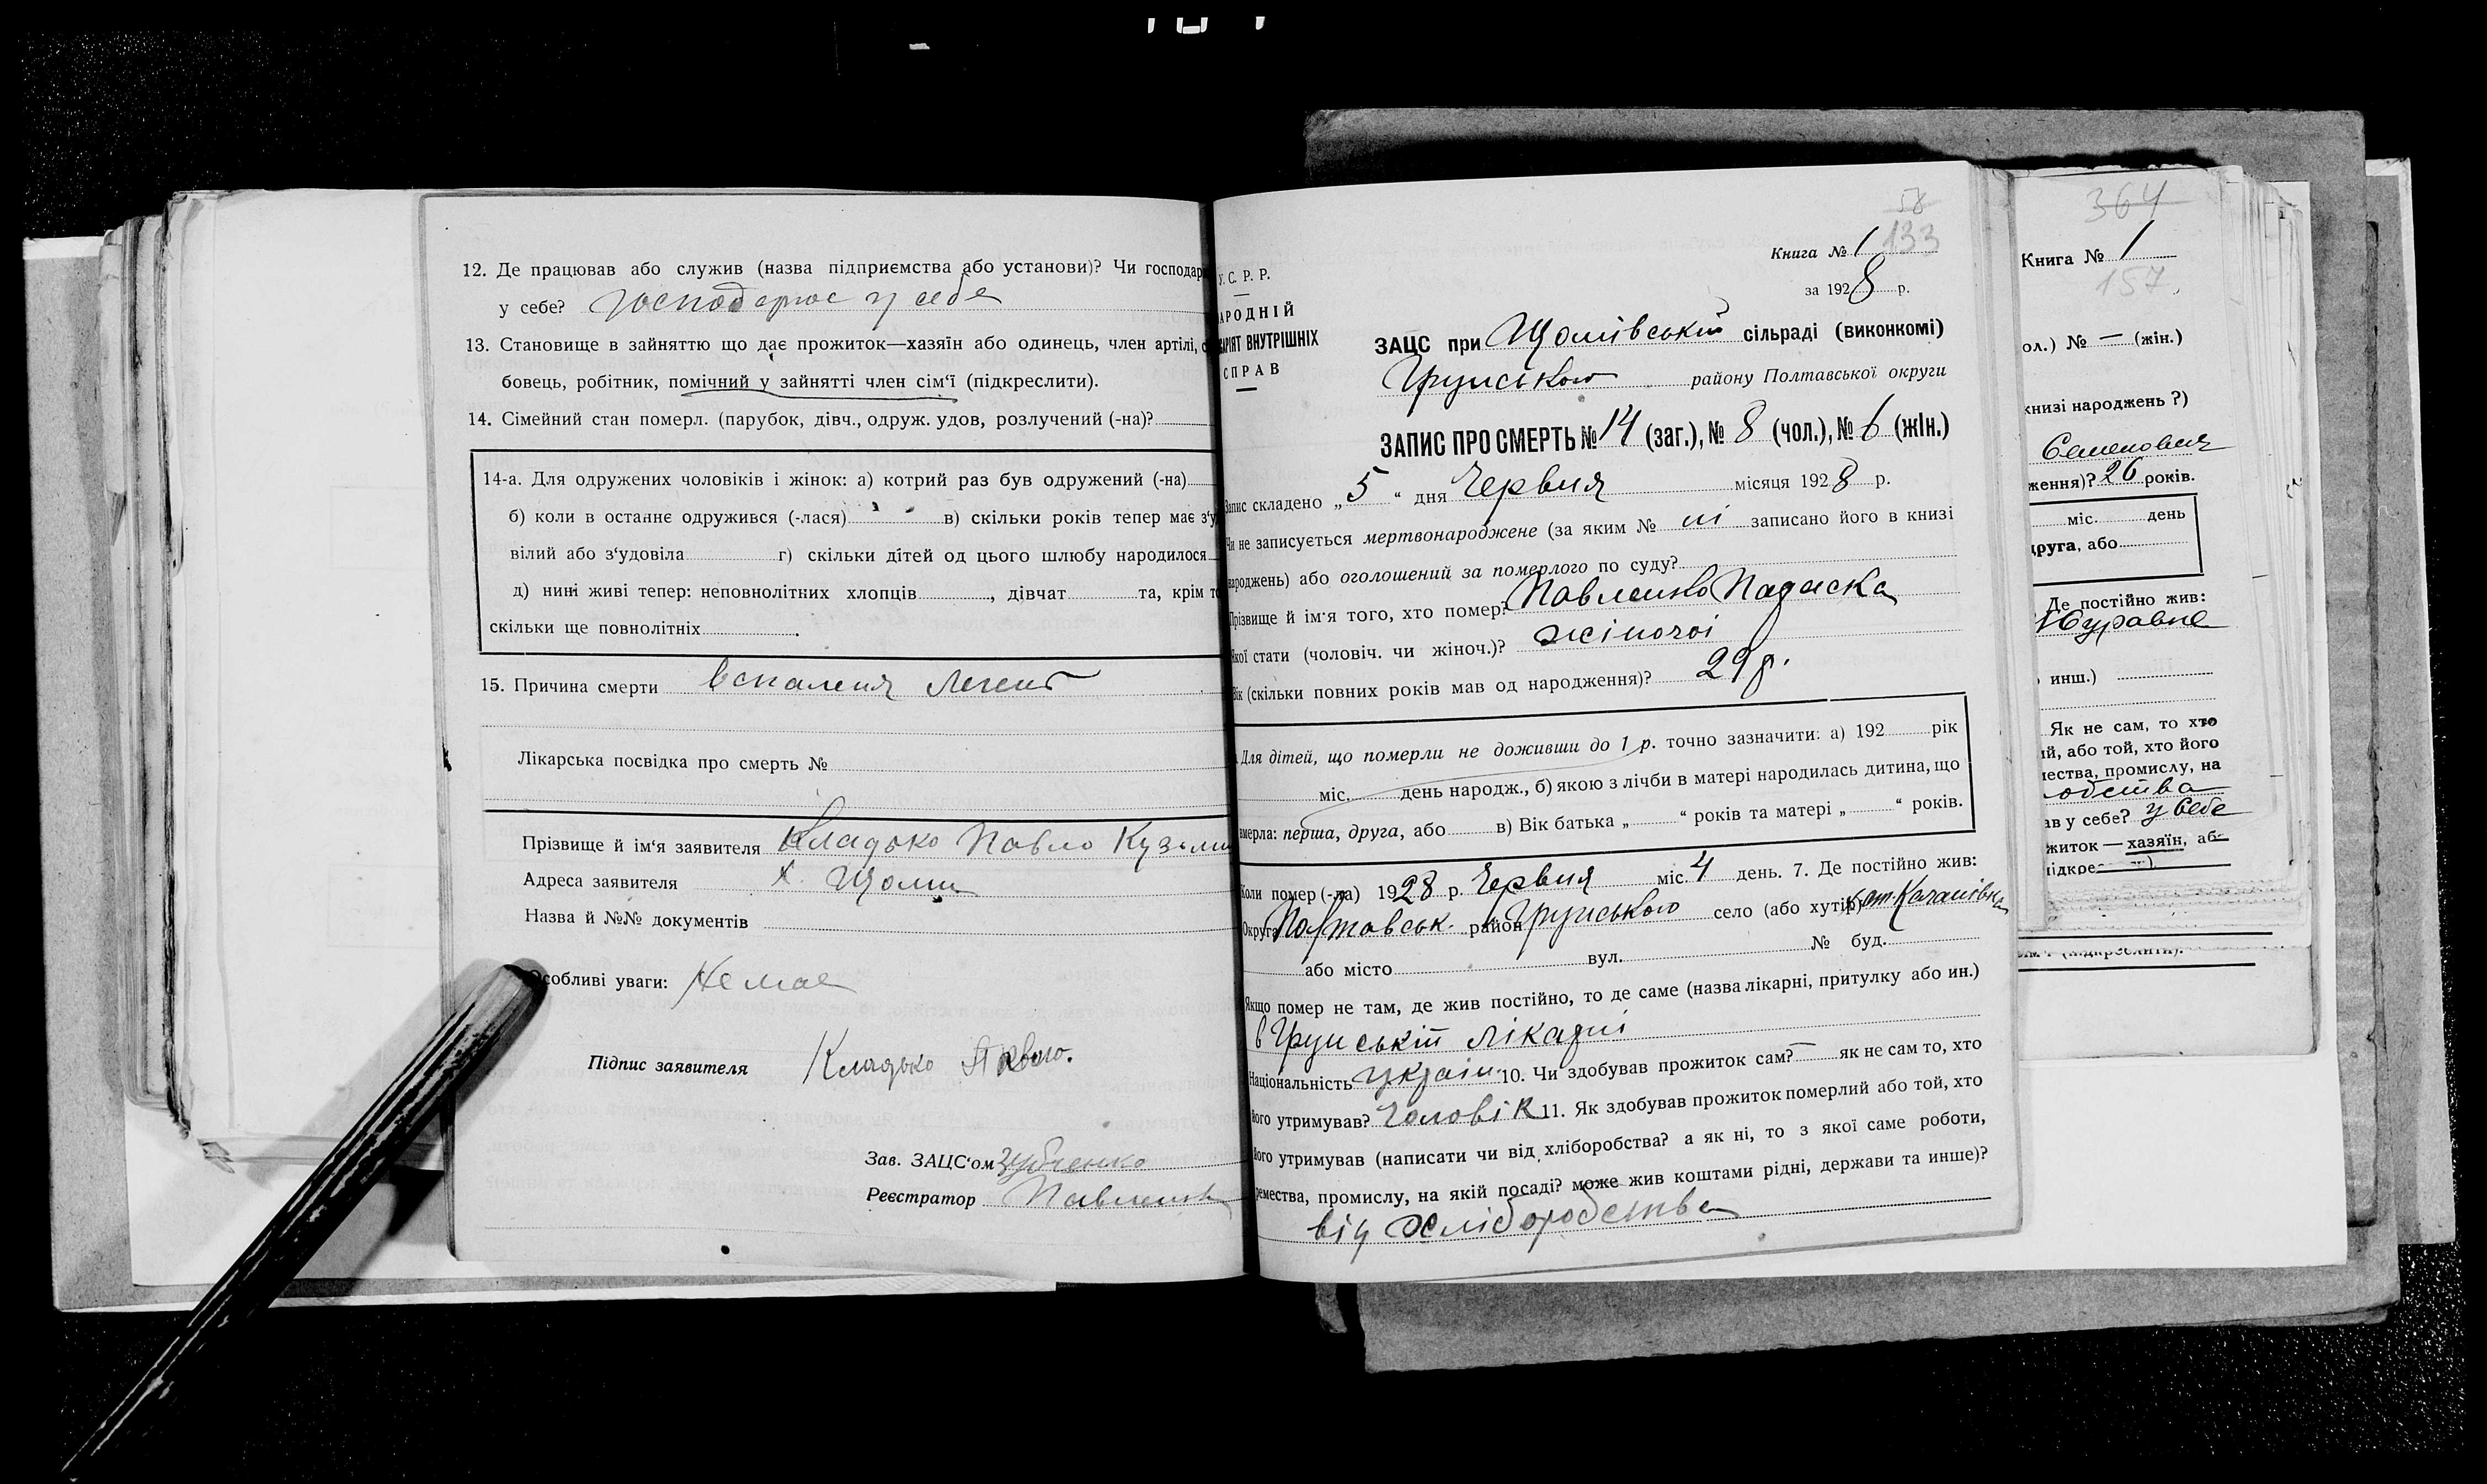 12. Де працював або служив (назва підприємства або установи)? Чи господар
у себе? господарює у себе
13. Становище в зайняттю що дає прожиток—хазяїн або одинець, член артілі, с
бовець, робітник, помічний у зайнятті член сім'ї (підкреслити).
14. Сімейний стан померл. (парубок, дівч., одруж. удов, розлучений (-на)?
14-а. Для одружених чоловіків і жінок: а) котрий раз був одружений (-на)
б) коли в останнє одружився (-лася) в) скільки років тепер має з'у
вілий або з'удовіла г) скільки дітей од цього шлюбу народилося
д) нині живі тепер: неповнолітних хлопців , дівчат та, крім т
скільки ще повнолітніх .
15. Причина смерти воспаленія легень
Лікарська посвідка про смерть №
Прізвище й ім'я заявителя Кладько Павло Кузьми
Адреса заявителя х. Щоми
Назва й №№ документів
Особливі уваги: Немає
Підпис заявителя Кладько Павло.
Зав. ЗАЦС'ом Зубченко
Реєстратор Павленко
58
133
Книга № 1
за 1928 р.
У. С. Р. Р.
АРОДНІЙ
АРІЯТ ВНУТРІШНІХ
СПРАВ
ЗАЦС при Щомівській сільраді (виконкомі)
Грунського району Полтавської округи
ЗАПИС ПРО СМЕРТЬ № 14 (заг.), № 8 (чол.), № 6 (жін.)
Запис складено „5" дня Червня місяця 1928 р.
Чи не записується мертвонароджене (за яким № ні записано його в книзі
народжень) або оголошений за померлого по суду?
Прізвище й ім'я того, хто помер? Павленко Параска
Якої стати (чоловіч. чи жіноч.)? жіночої
Вік (скільки повних років мав од народження)? 29 р.
Для дітей, що померли не доживши до 1 р. точно зазначити: а) 192 рік
міс. день народж., б) якою з лічби в матері народилась дитина, що
вмерла: перша, друга, або в) Вік батька „ " років та матері „ " років.
Коли помер (-ла) 1928 р. Червня міс. 4 день. 7. Де постійно жив:
Округа Полтавськ. район Грунського село (або хутір) хут. Качанівка
або місто вул. № буд.
Якщо помер не там, де жив постійно, то де саме (назва лікарні, притулку або ин.)
в Грунській лікарні
Національність україн. 10. Чи здобував прожиток сам? — як не сам то, хто
його утримував? Чоловік 11. Як здобував прожиток померлий або той, хто
його утримував (написати чи від хліборобства? а як ні, то з якої саме роботи,
ремества, промислу, на якій посаді? може жив коштами рідні, держави та инше)?
від хліборобства
364
Книга № 1
157.
ол.) № — (жін.)
книзі народжень ?)
Семенович
ження)? 26 років.
міс. день
друга, або
Де постійно жив:
Журавне
инш.)
Як не сам, то хто
ий, або той, хто його
мества, промислу, на
робства
ав у себе? у себе
житок — хазяїн, аб
підкре